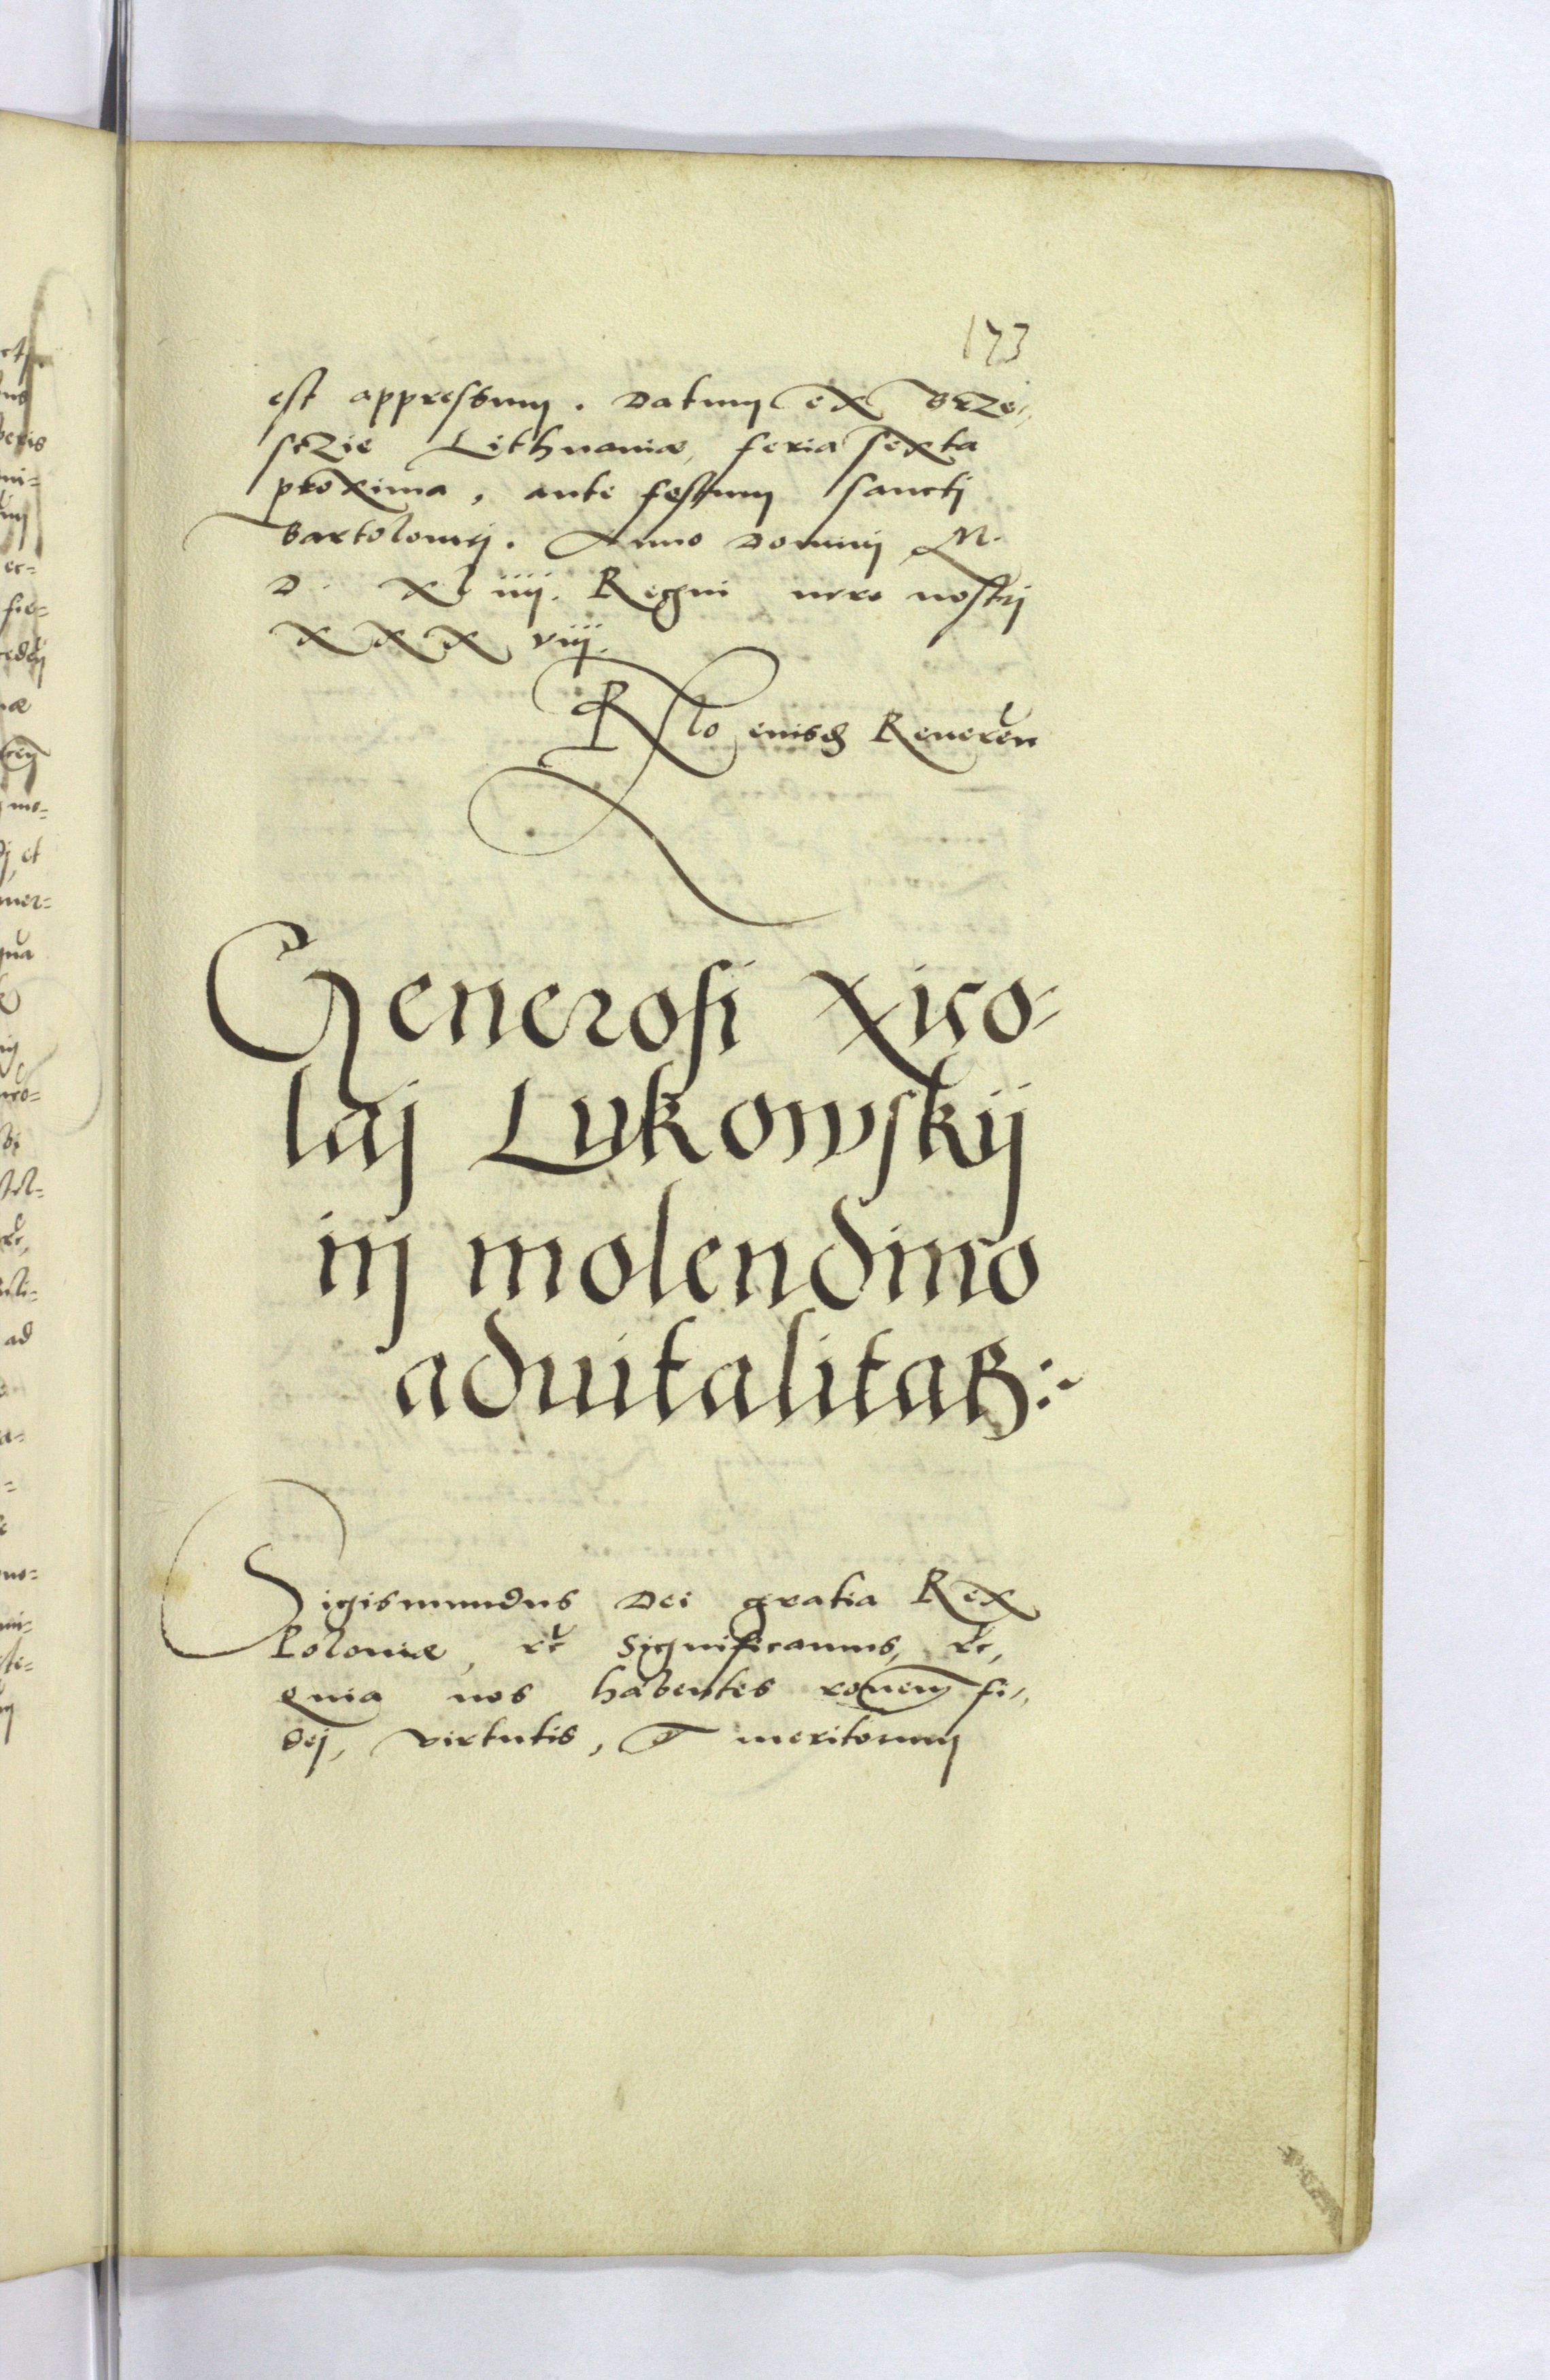 173
est appressum. Datum ex Brze-
sczie Lithuaniæ, feria sexta
proxima, ante festum sancti
Bartolomej. Anno Domini M.
D. XL iiij. Regni vero nostrj
XXX viij.
Rlo eiusdẽ Reveren
Generosi Nico-
laj Lukowskij
in molendino
aduitalitas:~
Sigismundus Dei gratia Rex
Poloniæ, rc̃ Significamus, rc̃,
quia nos habentes rõnem fi-
dej, virtutis, et meritorum